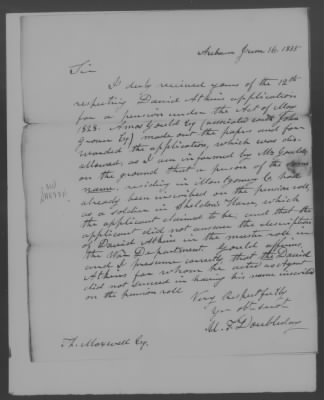 Auburn June 16. 1835
Sir
I duly received yours of the 12th
respecting David Atkins application
for a pension under the Act of May
1828. Amos Gould Esq (associated with John
Grover Esq) made out the papers and for-
warded the application, which was dis-
allowed, as I am informed by Mr Gould,
on the ground that a person of the same
name, residing in Montgomery Co had
already been inscribed on the pension roll,
as a soldier in Sheldon's Horse, which
the applicant claimed to be, and that the
applicant did not answer the description
of David Atkin in the muster roll in
the War Department. Gould affirms,
and I presume correctly that the David
Atkins for whom he acted as Agent
did not succeed in having his name inscribed
on the pension roll
Very Respectfully
yr obt servt
U. F. Doubleday
Th. Maxwell Esq.